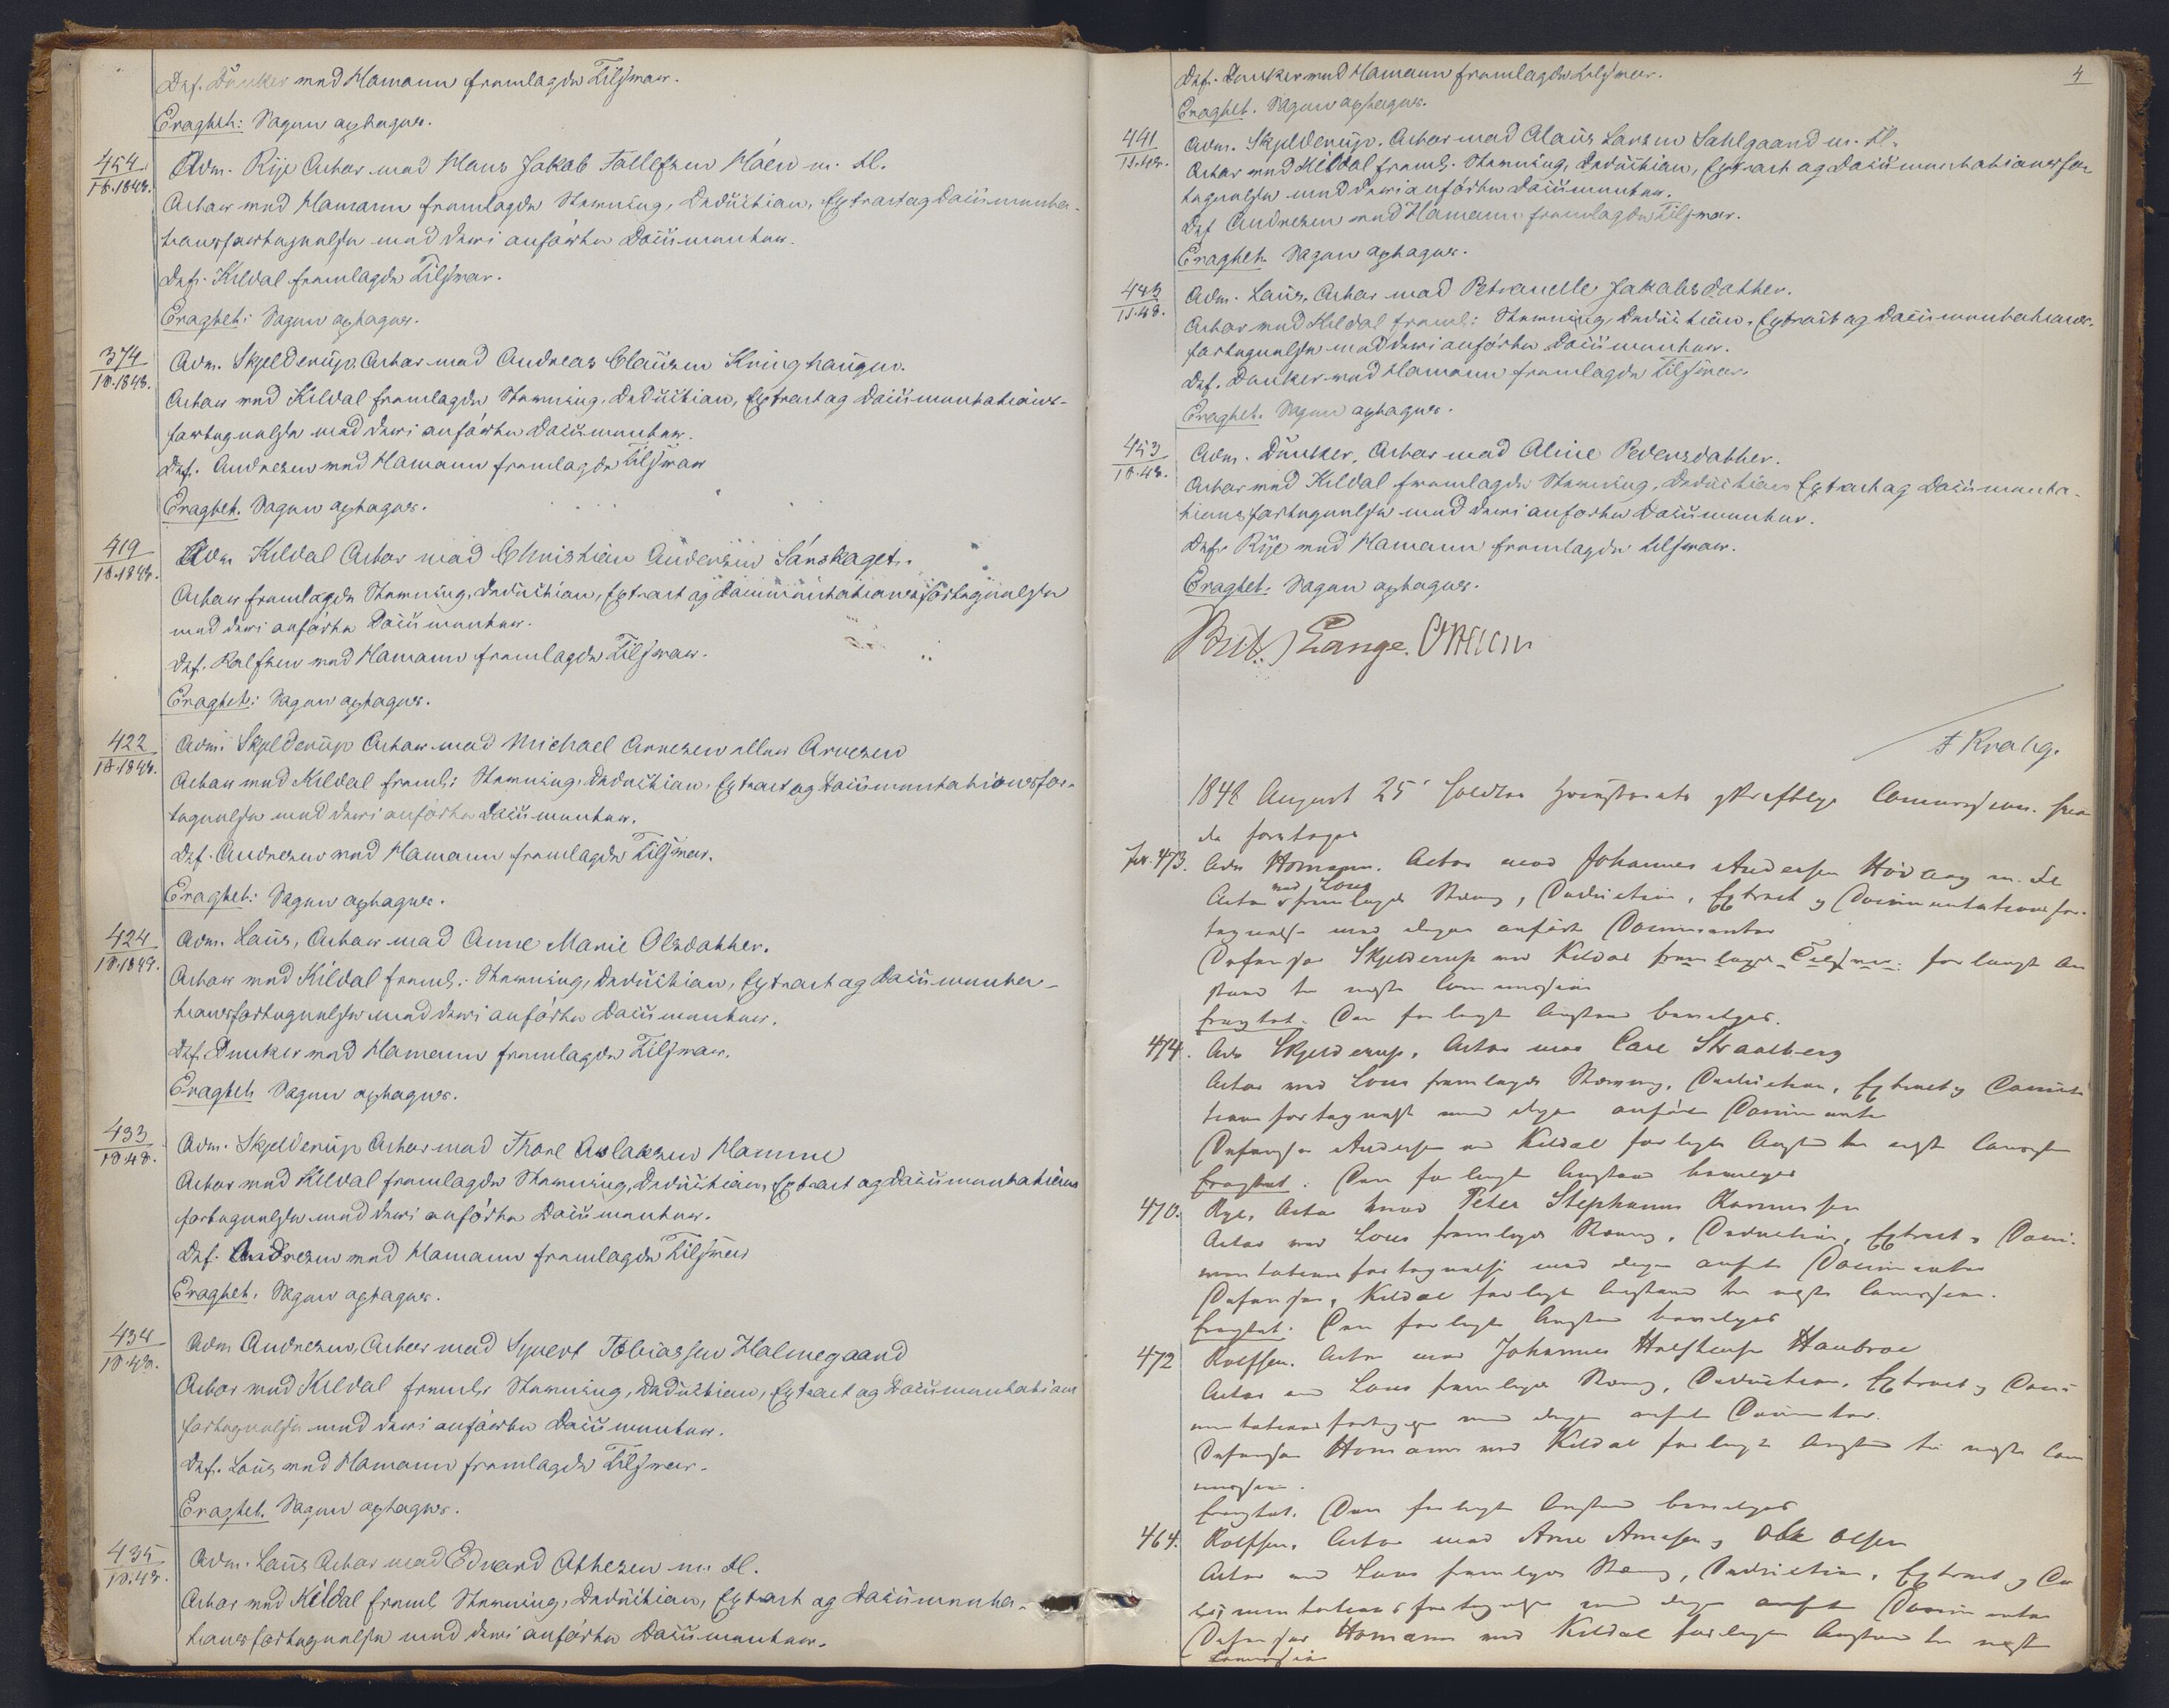 Def. Dunker med Hamann fremlagde Tilsvar.
Eragtet: Sagen optages.
454
18.1848.
Adv. Rye Actor mod Hans Jakob Tollefsen Moen m. fl.
Actor med Hamann fremlagde Stevning, Deduction, Extract og Documenta-
tionsfortegnelse med deri anførte Documenter.
Def. Kildal fremlagde Tilsvar.
Eragtet: Sagen optages.
374
18.1848.
Adv. Skjelderup Actor mod Andreas Clausen Kringhaugen.
Actor med Kildal fremlagde Stevning, Deduction, Extract og Documentations-
fortegnelse med deri anførte Documenter.
Def. Andresen med Hamann fremlagde Tilsvar
Eragtet. Sagen optages.
419
18.1848.
Adv. Kildal Actor mod Christian Andersen
Actor fremlagde Stevning, Deduction, Extract og Documentationsfortegnelse
med deri anførte Documenter.
Def. Rolfsen med Hamann fremlagde Tilsvar.
Eragtet: Sagen optages.
422
18.1848.
Adv. Skjelderup Actor mod Michael Arnesen eller Arvesen
Actor med Kildal freml: Stevning, Deduction, Extract og Documentationsfor-
tegnelse med deri anførte Documenter.
Def. Andresen med Hamann fremlagde Tilsvar.
Eragtet: Sagen optages.
424
18.1848.
Adv. Lous, Actor mod Anne Marie Olsdatter.
Actor med Kildal freml: Stevning, Deduction, Extract og Documenta-
tionsfortegnelse med deri anførte Documenter.
Def. Dunker med Hamann fremlagde Tilsvar.
Eragtet Sagen optages.
433
18.48.
Adv. Skjelderup Actor mod Thore Aslaksen
Actor med Kildal fremlagde Stevning, Deduction, Extract og Documentations
fortegnelse med deri anførte Documenter.
Def. Andresen med Hamann fremlagde Tilsvar
Eragtet. Sagen optages.
434
18.48.
Adv. Andresen, Actor mod Syvert Tobiassen Holmegaard
Actor med Kildal freml: Stevning, Deduction, Extract og Documentations
fortegnelse med deri anførte Documenter.
Def. Lous med Hamann fremlagde Tilsvar.
Eragtet. Sagen optages.
435
18.48.
Adv. Lous Actor mod Edvard Ottesen m. fl.
Actor med Kildal freml Stevning, Deduction, Extract og Documenta-
tionsfortegnelse med deri anførte Documenter.
4
Def. Dunker med Hamann fremlagde Tilsvar.
Eragtet. Sagen optages.
441
18.48.
Adv. Skjelderup. Actor mod Claus Larsen Sahlgaard m. fl.
Actor med Kildal freml. Stevning, Deduction, Extract og Documentationsfor
tegnelse med deri anførte Documenter.
Def Andresen med Hamann fremlagde Tilsvar.
Eragtet. Sagen optages.
443
18.48.
Adv. Lous, Actor mod Petronelle Jakobsdatter.
Actor med Kildal freml: Stevning, Deduction, Extract og Documentations-
fortegnelse med deri anførte Documenter.
Def. Dunker med Hamann fremlagde Tilsvar.
Eragtet. Sagen optages.
453
18.48.
Adv. Dunker, Actor mod Aline Pedersdatter.
Actor med Kildal fremlagde Stevning, Deduction Extract og Documenta-
tionsfortegnelse med deri anførte Documenter.
Def. Rye med Hamann fremlagde Tilsvar.
Eragtet. Sagen optages.
Lange.
1848 August 25 holdtes Høiesterets skriftlige Commission. hvor
da foretoges
473. Adv Homann. Actor mod Johannes Andersen m. fl
Actor med Lous fremlagde Stevning, Deduction, Extract og Documentationsfor-
tegnelse med deri anførte Documenter
Defensor Skjelderup med Kildal fremlagde Tilsvar: forlangte An
stand til næste Commission
Eragtet. Den forlangte Anstand bevilges.
474. Adv Skjelderup, Actor mod Carl Straalberg
Actor med Lous fremlagde Stevning, Deduction, Extract og Documenta
tionsfortegnelse med deri anførte Documenter
Defensor Andresen med Kildal forlangte Anstand til næste Commission
Eragtet. Den forlangte Anstand bevilges
470. Rye, Actor mod Peter Stephanus Rasmussen
Actor med Lous fremlagde Stevning, Deduction, Extract og Docu-
mentationsfortegnelse med deri anførte Documenter
Defensor, Kildal forlangte Anstand til næste Commission.
Eragtet. Den forlangte Anstand bevilges
472 Rolfsen. Actor mod Johannes
Actor med Lous fremlagde Stevning, Deduction, Extract og Docu
mentationsfortegnelse med deri anførte Documenter.
Defensor Homann med Kildal forlangte Anstand til næste Com
mission.
Eragtet. Den forlangte Anstand bevilges
464. Rolfsen. Actor mod Arne Arnesen og Ole Olsen
Actor med Lous fremlagde Stevning, Deduction, Extract og Do
cumentationsfortegnelse med deri anførte Documenter
Defensor Homann med Kildal forlangte Anstand til næste
Commission